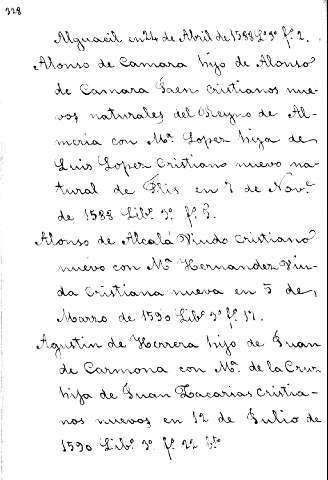 328
Alguacil en 24 de Abril de 1588 L.º 3º f.º 2.
Alonso de Camara hijo de Alonso
de Camara Jaen cristianos nue-
vos naturales del Reyno de Al-
meria con M.ª Lopez hija de
Luis Lopez Cristiano nuevo na-
tural de Filis en 7 de Nov.e
de 1588 Lib.º 3º f.º 8.
Alonso de Alcalá Viudo Cristiano
nuevo con M.ª Hernandez Viu-
da Cristiana nueva en 5 de
Marzo de 1590 Lib.º 3º f.º 17.
Agustin de Herrera hijo de Juan
de Carmona con M.ª de la Cruz
hija de Juan Zacarias Cristia-
nos nuevos en 12 de Julio de
1590 Lib.º 3º f.º 22 v.to